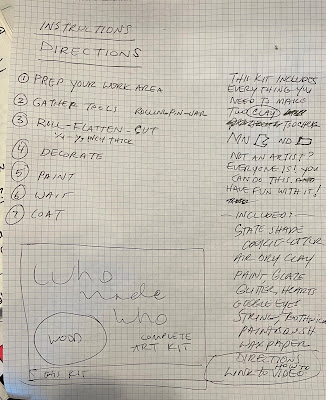 INSTRUCTIONS
DIRECTIONS
① PREP YOUR WORK AREA
② GATHER TOOLS ROLLING PIN-JAR
③ ROLL-FLATTEN-CUT
¼ - ⅛ INCH THICK
④ DECORATE
⑤ PAINT
⑥ WAIT
⑦ COAT
THIS KIT INCLUDES
EVERYTHING YOU
NEED TO MAKE
CLAY
MN ND
NOT AN ARTIST?
EVERYONE IS! YOU
CAN DO THIS.
HAVE FUN WITH IT!
INCLUDED:
STATE SHAPE
COOKIE CUTTER
AIR DRY CLAY
PAINT GLAZE
GLITTER, HEARTS
GOOGLE EYES
STRING /
PAINTBRUSH
WAX PAPER
DIRECTIONS
LINK TO HOW TO VIDEO
Who
made
Who
WOOD
COMPLETE
ART KIT
THIS KIT